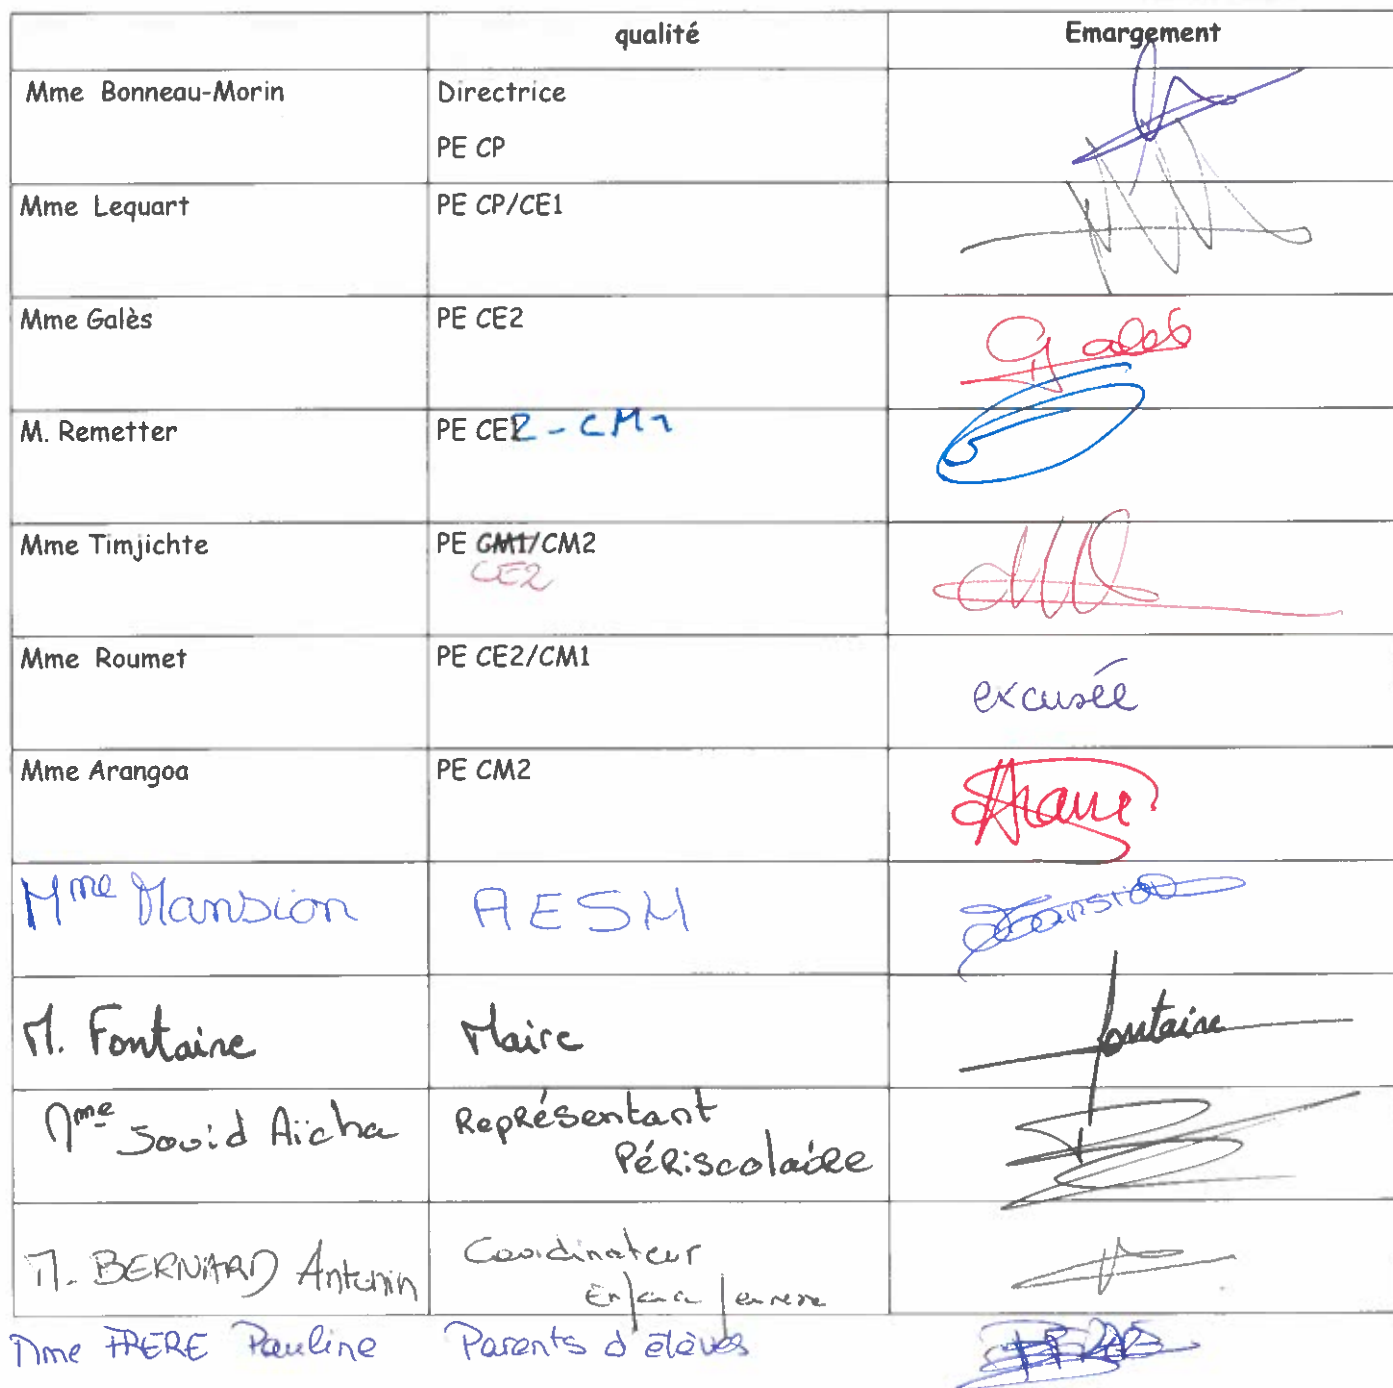 qualité Emargement
Mme Bonneau-Morin Directrice
PE CP
Mme Lequart PE CP/CE1
Mme Galès PE CE2 Galès
M. Remetter PE CE2 - CM1
Mme Timjichte PE CM1/CM2
CE2
Mme Roumet PE CE2/CM1 excusée
Mme Arangoa PE CM2
Mme Mansion AESH Mansion
M. Fontaine Maire fontaine
Mme Aïcha Représentant
Périscolaire
M. BERNARD Antonin Coordinateur
Mme FRERE Pauline Parents d'élèves